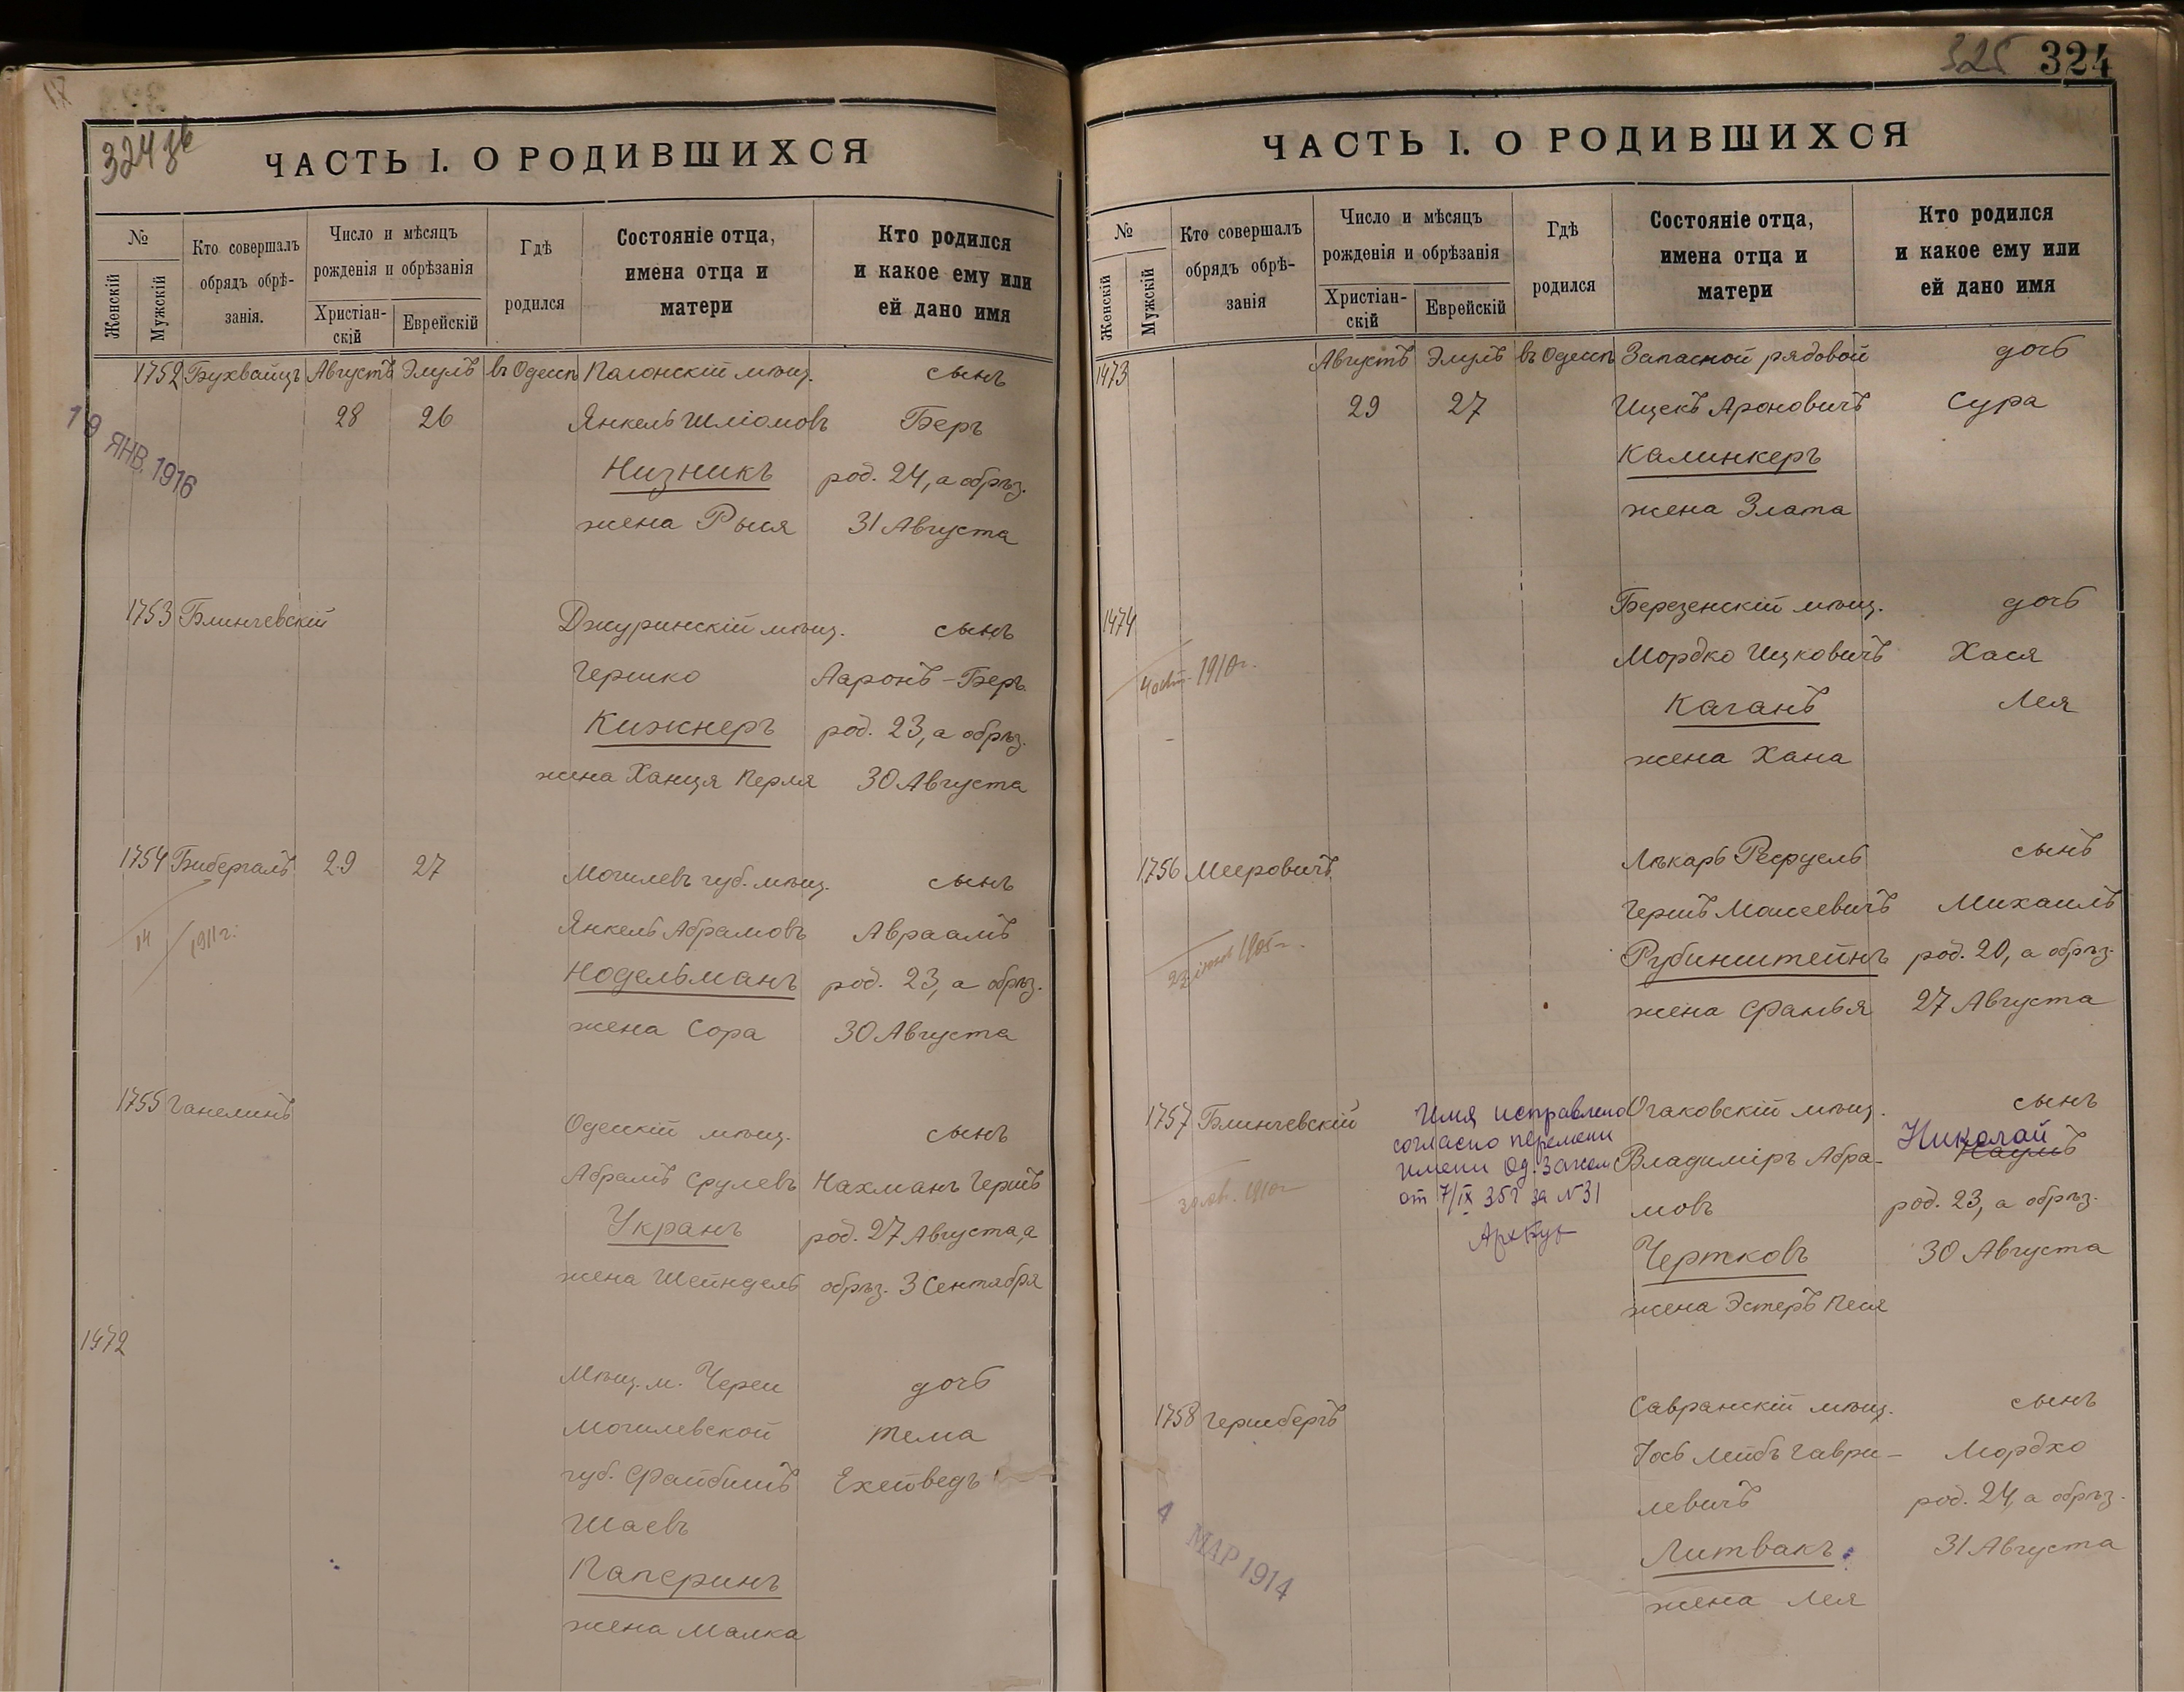 324 зв
ЧАСТЬ I. О РОДИВШИХСЯ
№
Женскій
Мужскій
Кто совершалъ
обрядъ обрѣ-
занія.
Число и мѣсяцъ
рожденія и обрѣзанія
Христіан-
скій
Еврейскій
Гдѣ
родился
Состояніе отца,
имена отца и
матери
Кто родился
и какое ему или
ей дано имя
1752 Бухвайцъ Августъ Элулъ въ Одессѣ мѣщ. сынъ
28 26 Янкель Шліомовъ Беръ
Низникъ род. 24, а обрѣз.
жена Рыся 31 Августа
19 ЯНВ. 1916
1753 Блинчевскій Джуринскій мѣщ. сынъ
Гершко Ааронъ-Беръ
Кижнеръ род. 23, а обрѣз.
жена Ханця Перля 30 Августа
1754 Бибергалъ 29 27 Могилевъ губ. мѣщ. сынъ
Янкель Абрамовъ Авраамъ
14 1911 г.
Нодельманъ род. 23, а обрѣз.
жена Сора 30 Августа
1755 Ганелинъ Одесскій мѣщ. сынъ
Абрамъ Срулевъ Нахманъ Гершъ
Укранъ род. 27 Августа, а
жена Шейндель обрѣз. 3 Сентября
1472 Мѣщ. м. Череи дочь
Могилевской Тема
губ. Файбишъ Ехевведъ
Шаевъ
Паперинъ
жена Малка
325 324
ЧАСТЬ I. О РОДИВШИХСЯ
№
Женскій
Мужскій
Кто совершалъ
обрядъ обрѣ-
занія
Число и мѣсяцъ
рожденія и обрѣзанія
Христіан-
скій
Еврейскій
Гдѣ
родился
Состояніе отца,
имена отца и
матери
Кто родился
и какое ему или
ей дано имя
1473 Августъ Элулъ въ Одессѣ Запасной рядовой дочь
29 27 Ицекъ Ароновичъ Сура
Калинкеръ
жена Злата
1474 Березенскій мѣщ. дочь
Мордко Ицковичъ Хася
4 окт. 1910 г.
Каганъ Лея
жена Хана
1756 Мееровичъ Лѣкарь Рефуель сынъ
Гершъ Моисеевичъ Михаилъ
1905 г.
Рубинштейнъ род. 20, а обрѣз.
жена Фанья 27 Августа
1757 Блинчевскій Очаковскій мѣщ. сынъ
Имя исправлено
согласно перемени
имени Од. Загсом
от 7/IX 35 г за № 31
Владиміръ Абра- Николай
Наумъ
мовъ род. 23, а обрѣз.
1910 г
Чертковъ 30 Августа
жена Эстеръ Песя
1758 Гершбергъ Савранскій мѣщ. сынъ
Іось Лейбъ Гаври- Мордко
левичъ род. 24, а обрѣз.
Литвакъ 31 Августа
жена Лея
4 МАР 1914